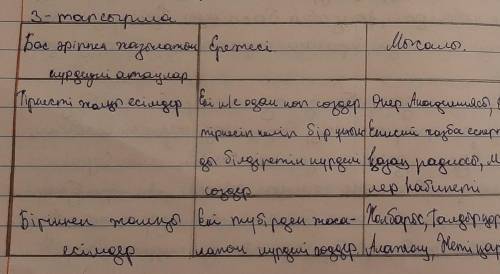 3-тапсырма
Бас әріппен жазылатын күрделі атаулар
Ережесі
Мысалы.
Тіркесті жалқы есімдер
Екі н/е одан көп сөздер
тіркесіп келіп бір ұғым
ды білдіретін күрделі
сөздер
Өнер Академиясы,
Енисей жазба ескерт
Қазақ радиосы, М
лер кабинеті
Біріккен жалқы
есімдер
екі түбірден жаса-
латын күрделі сөздер
Колбарыс, Талдықор
Алатау, Жеті қар